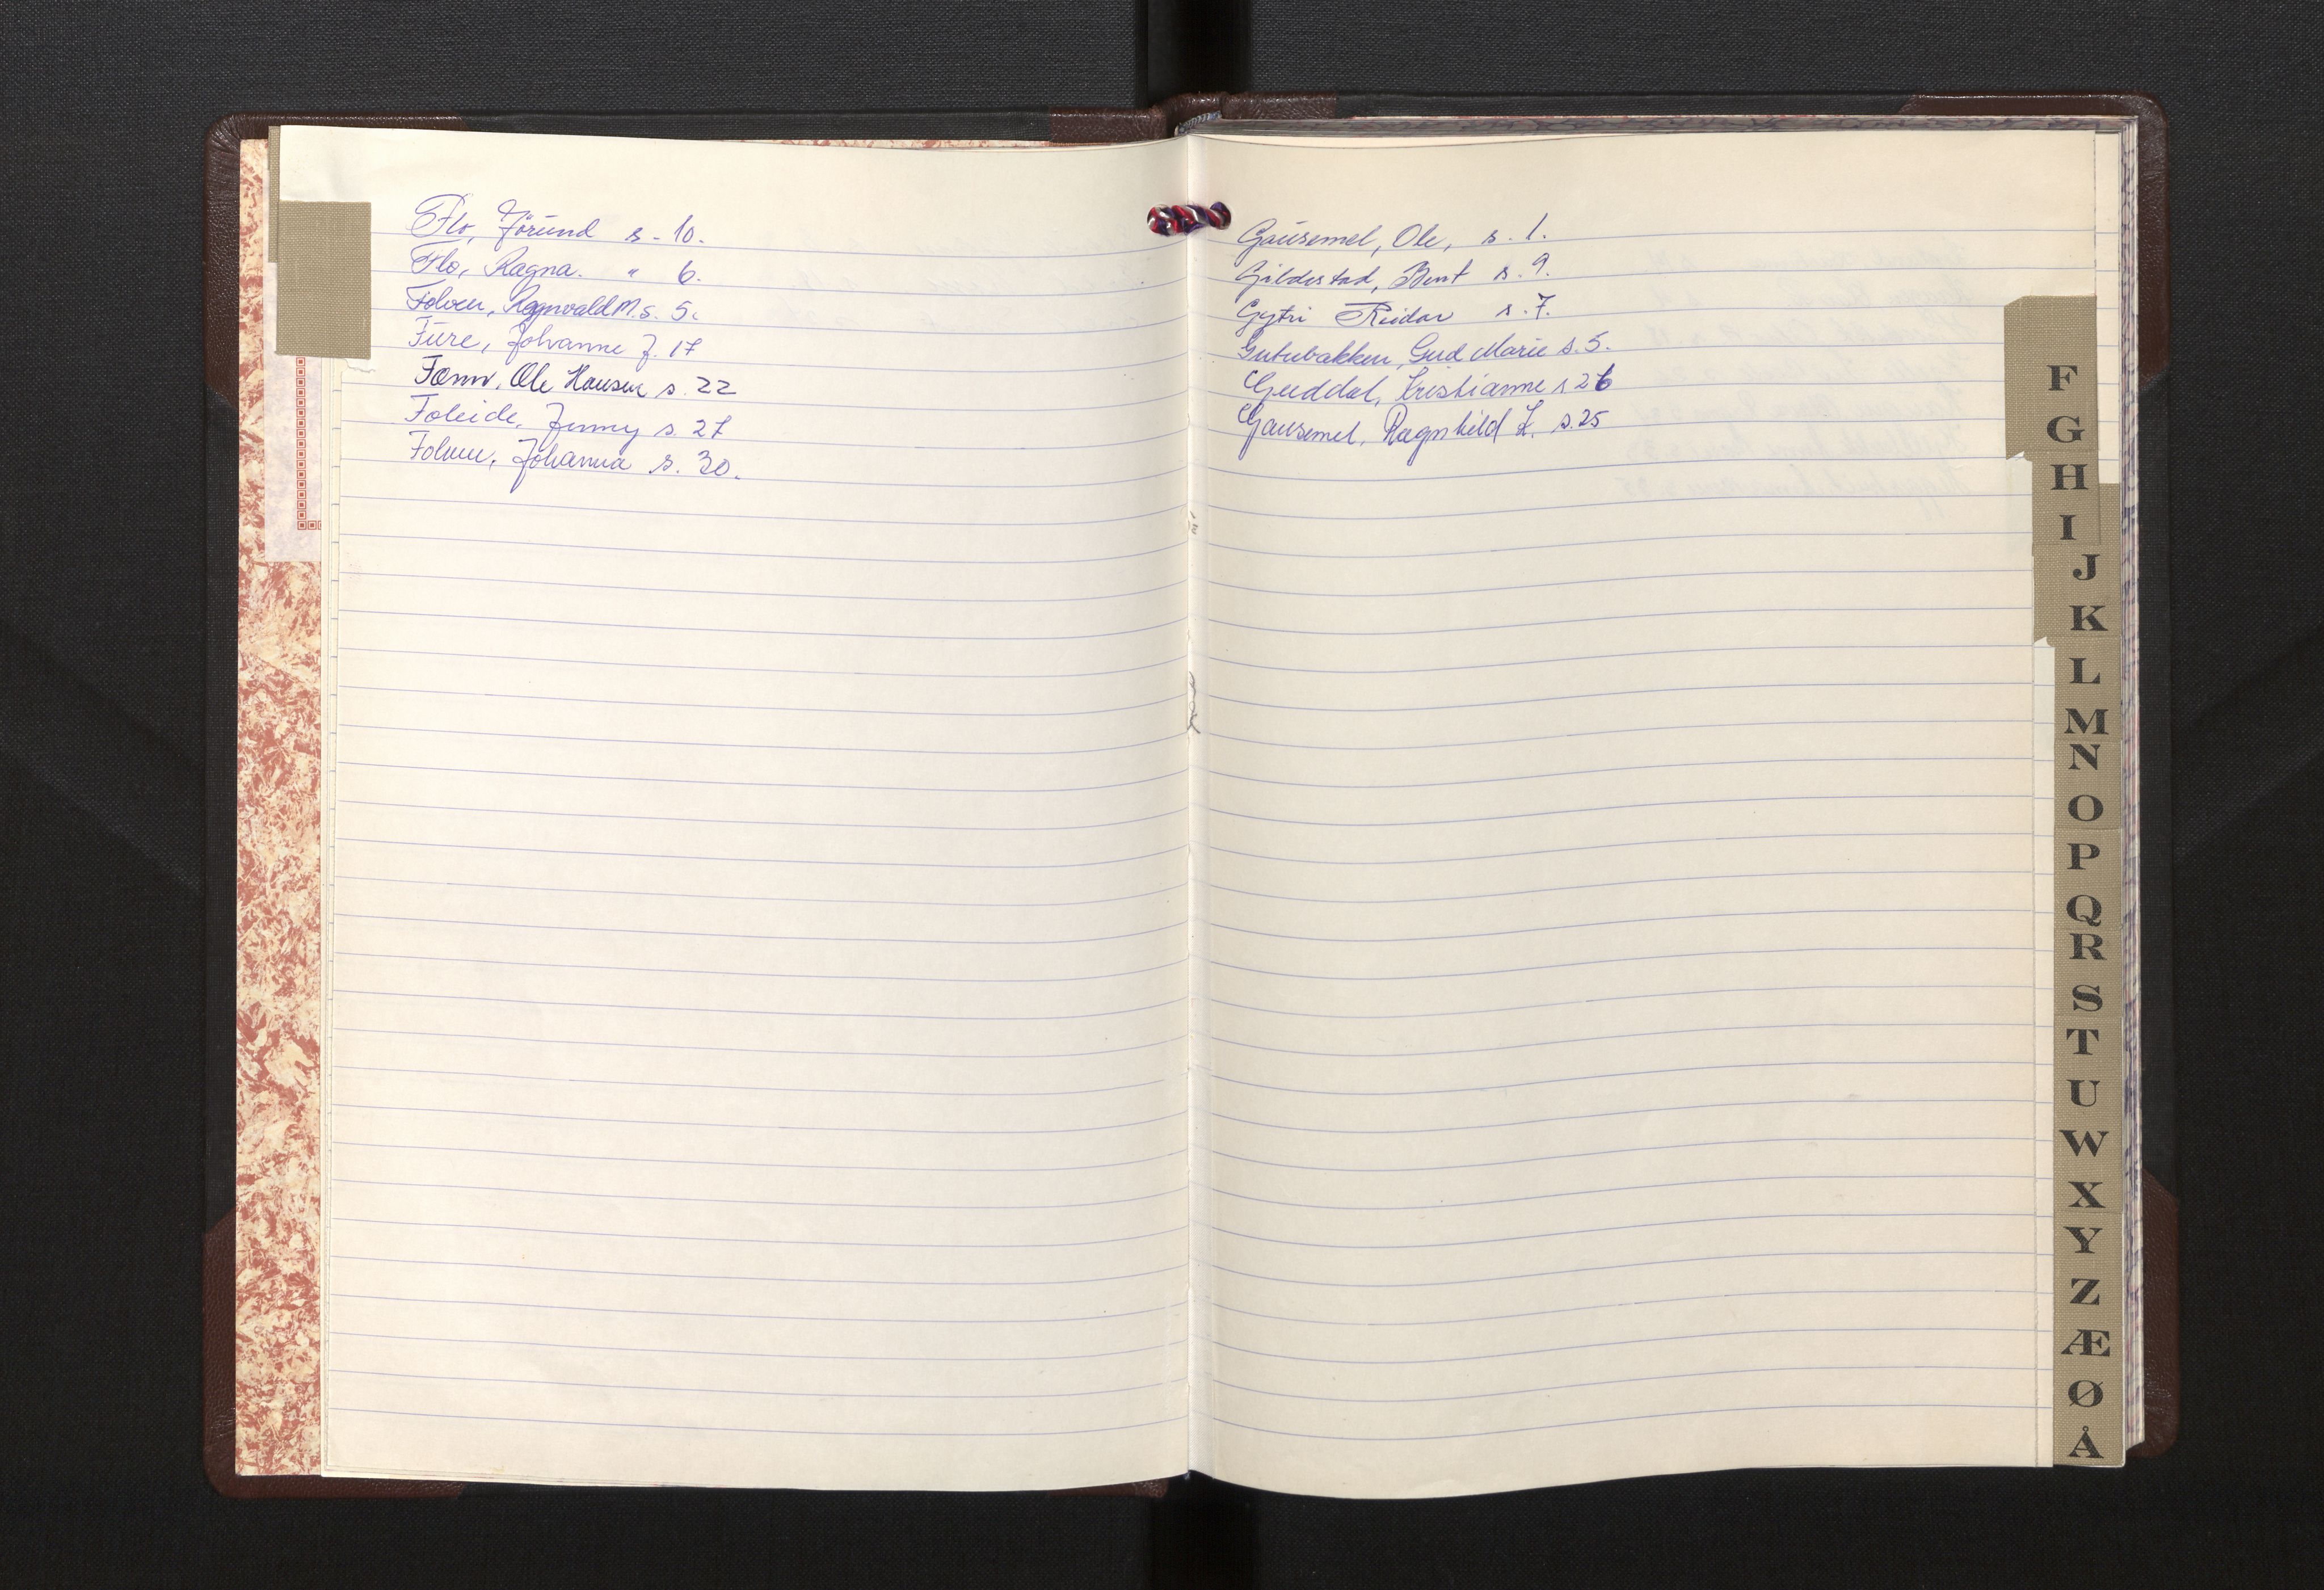 Flo, Jörund s. 10.
Flo, Ragna. " 6.
Folven, Ragnvald M. s. 5.
Fure, Johanne J. 17
Fænn, Ole Hansen s. 22
Foleide, Jenny s. 27
Folven, Johanna s. 30.
Gausemel, Ole, s. 1.
Gildestad, Bent s. 9.
Gytri Reidar s. 7.
Gutubakken, Gud Marie s. 5.
Guddal, Kristianne s 26
Gausemel, Ragnhild K. s. 25
F
G
H
I
J
K
L
M
N
O
P
Q
R
S
T
U
W
X
Y
Z
Æ
Ø
Å